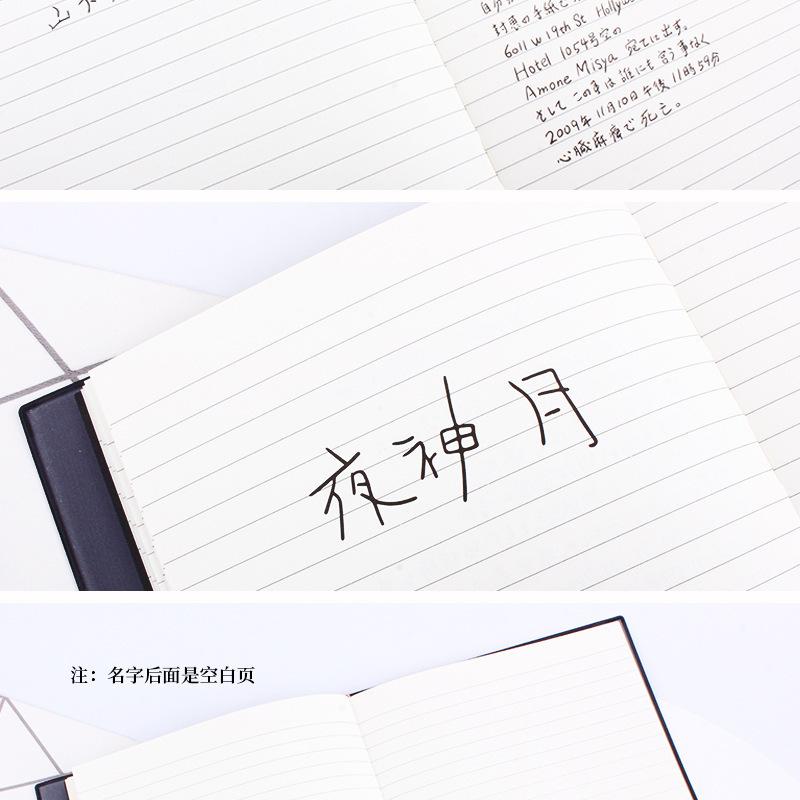 封書の手紙で
6011 w 19th St Hollyw
Hotel 1054号室の
Amone Misya 宛てに出す。
そして この事は 誰にも 言う事なく
2009年 11月10日 午後 11時59分
心臓麻痺で 死亡。
夜神 月
注：名字后面是空白页